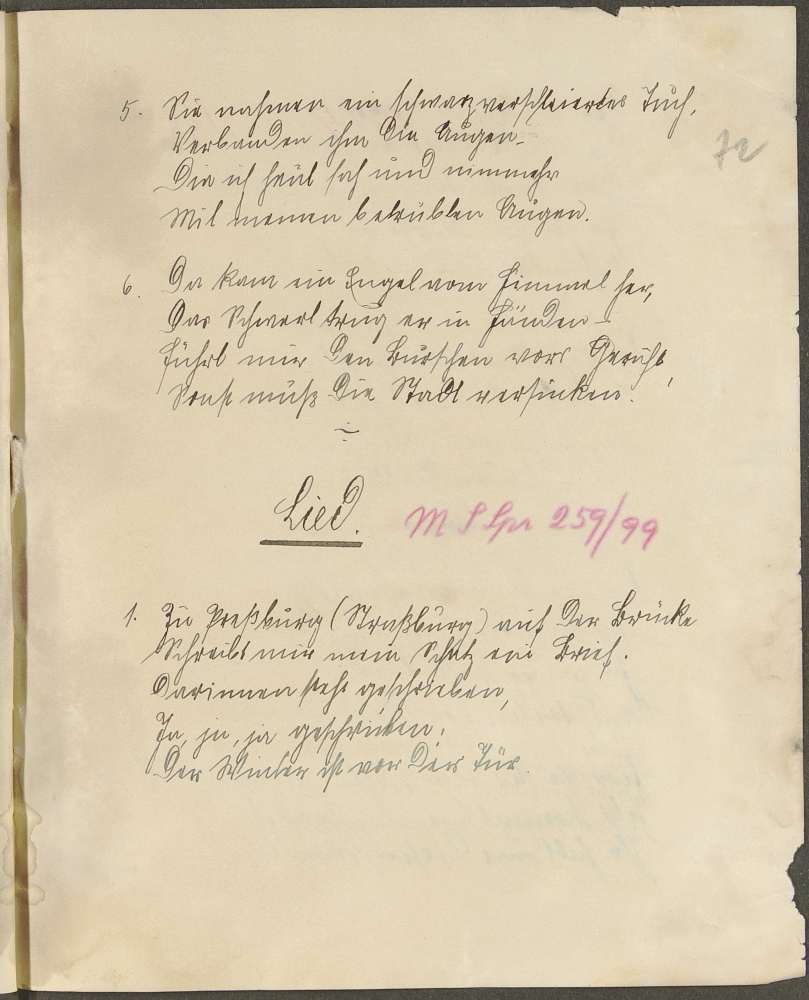 5. Sie nahmen ein schwarzverschleiertes Tuch,
72
Verbanden ihm die Augen.
Die ich heut sah und nimmehr
Mit meinen betrübten Augen.
6. Da kam ein Engel vom Himmel her,
Das Schwert trug er in Händen –
Führt mir den Burschen vors Gericht,
Sonst muß die Stadt versinken.
Lied.
M 259/99
1. Zu Preßburg (Straßburg) auf der Brücke
Schreibt mir mein Schatz ein Brief.
Darinnen steht geschrieben,
Ja, ja, ja geschrieben,
Der Winter ist vor der Tür.